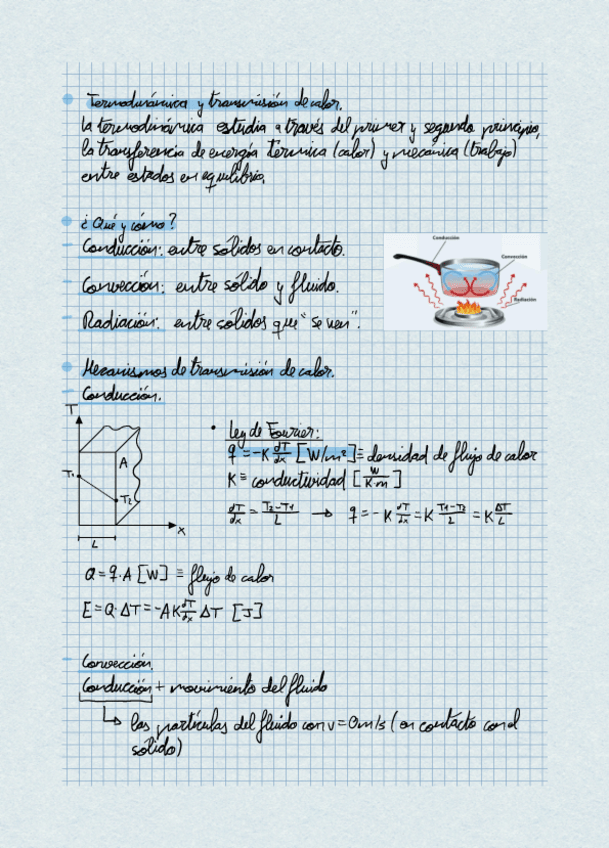 Termodinámica y transmisión de calor.
la termodinámica estudia a través del primer y segundo principio,
la transferencia de energía térmica (calor) y mecánica (trabajo)
entre estados en equilibrio.
¿Qué y cómo?
Conducción: entre sólidos en contacto.
Convección: entre sólido y fluido.
Radiación: entre sólidos que "se ven".
Conducción
Convección
Radiación
Mecanismos de transmisión de calor.
Conducción.
T
T₁
A
T₂
x
L
Ley de Fourier:
q = -K dT/dx [W/m²] ≡ densidad de flujo de calor
K ≡ conductividad [W/K·m]
dT/dx = T₂-T₁/L → q = -K dT/dx = K T₁-T₂/L = K ΔT/L
Q = q·A [W] ≡ flujo de calor
E = Q·ΔT = -AK dT/dx ΔT [J]
Convección.
Conducción + movimiento del fluido
↳ las partículas del fluido con v=0m/s (en contacto con el
sólido)